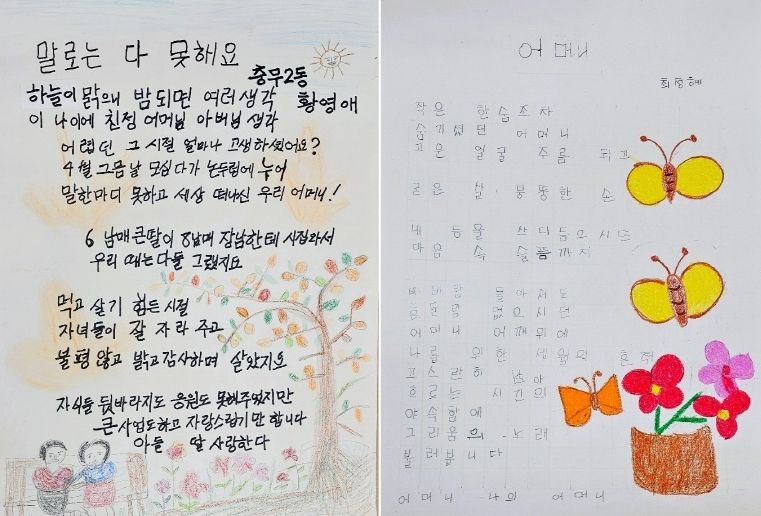 말로는 다 못해요
충무2동
황영애
하늘이 맑으니 밤되면 여러생각
이 나이에 친정 어머님 아버님 생각
어렵던 그 시절 얼마나 고생하셨어요?
4월 그믐날 모심다가 논두렁에 누어
말한마디 못하고 세상 떠나신 우리 어머니!
6남매 큰딸이 8남매 장남한테 시집와서
우리 때는 다들 그랬지요
먹고 살기 힘든 시절
자녀들이 잘 자라 주고
불평 않고 밝고 감사하며 살았지요
자식들 뒷바라지도 응원도 못해주었지만
큰사업도하고 자랑스럽기만 합니다
아들 딸 사랑한다
어머니
최정혜
작은 한숨조차
숨기셨던 어머니
고운 얼굴 주름 되고
굳은 살 뭉뚱한 손
내 등을 쓰다듬으시던
마음 속 슬픔까지
비바람 몰아쳐도
흔들림 없으시던
어머니 어깨위에
나를 위한 세월의 흔적
고스란히 남아
흐르는 시간의
야속함에
그리움의 노래
불러봅니다
어머니 나의 어머니